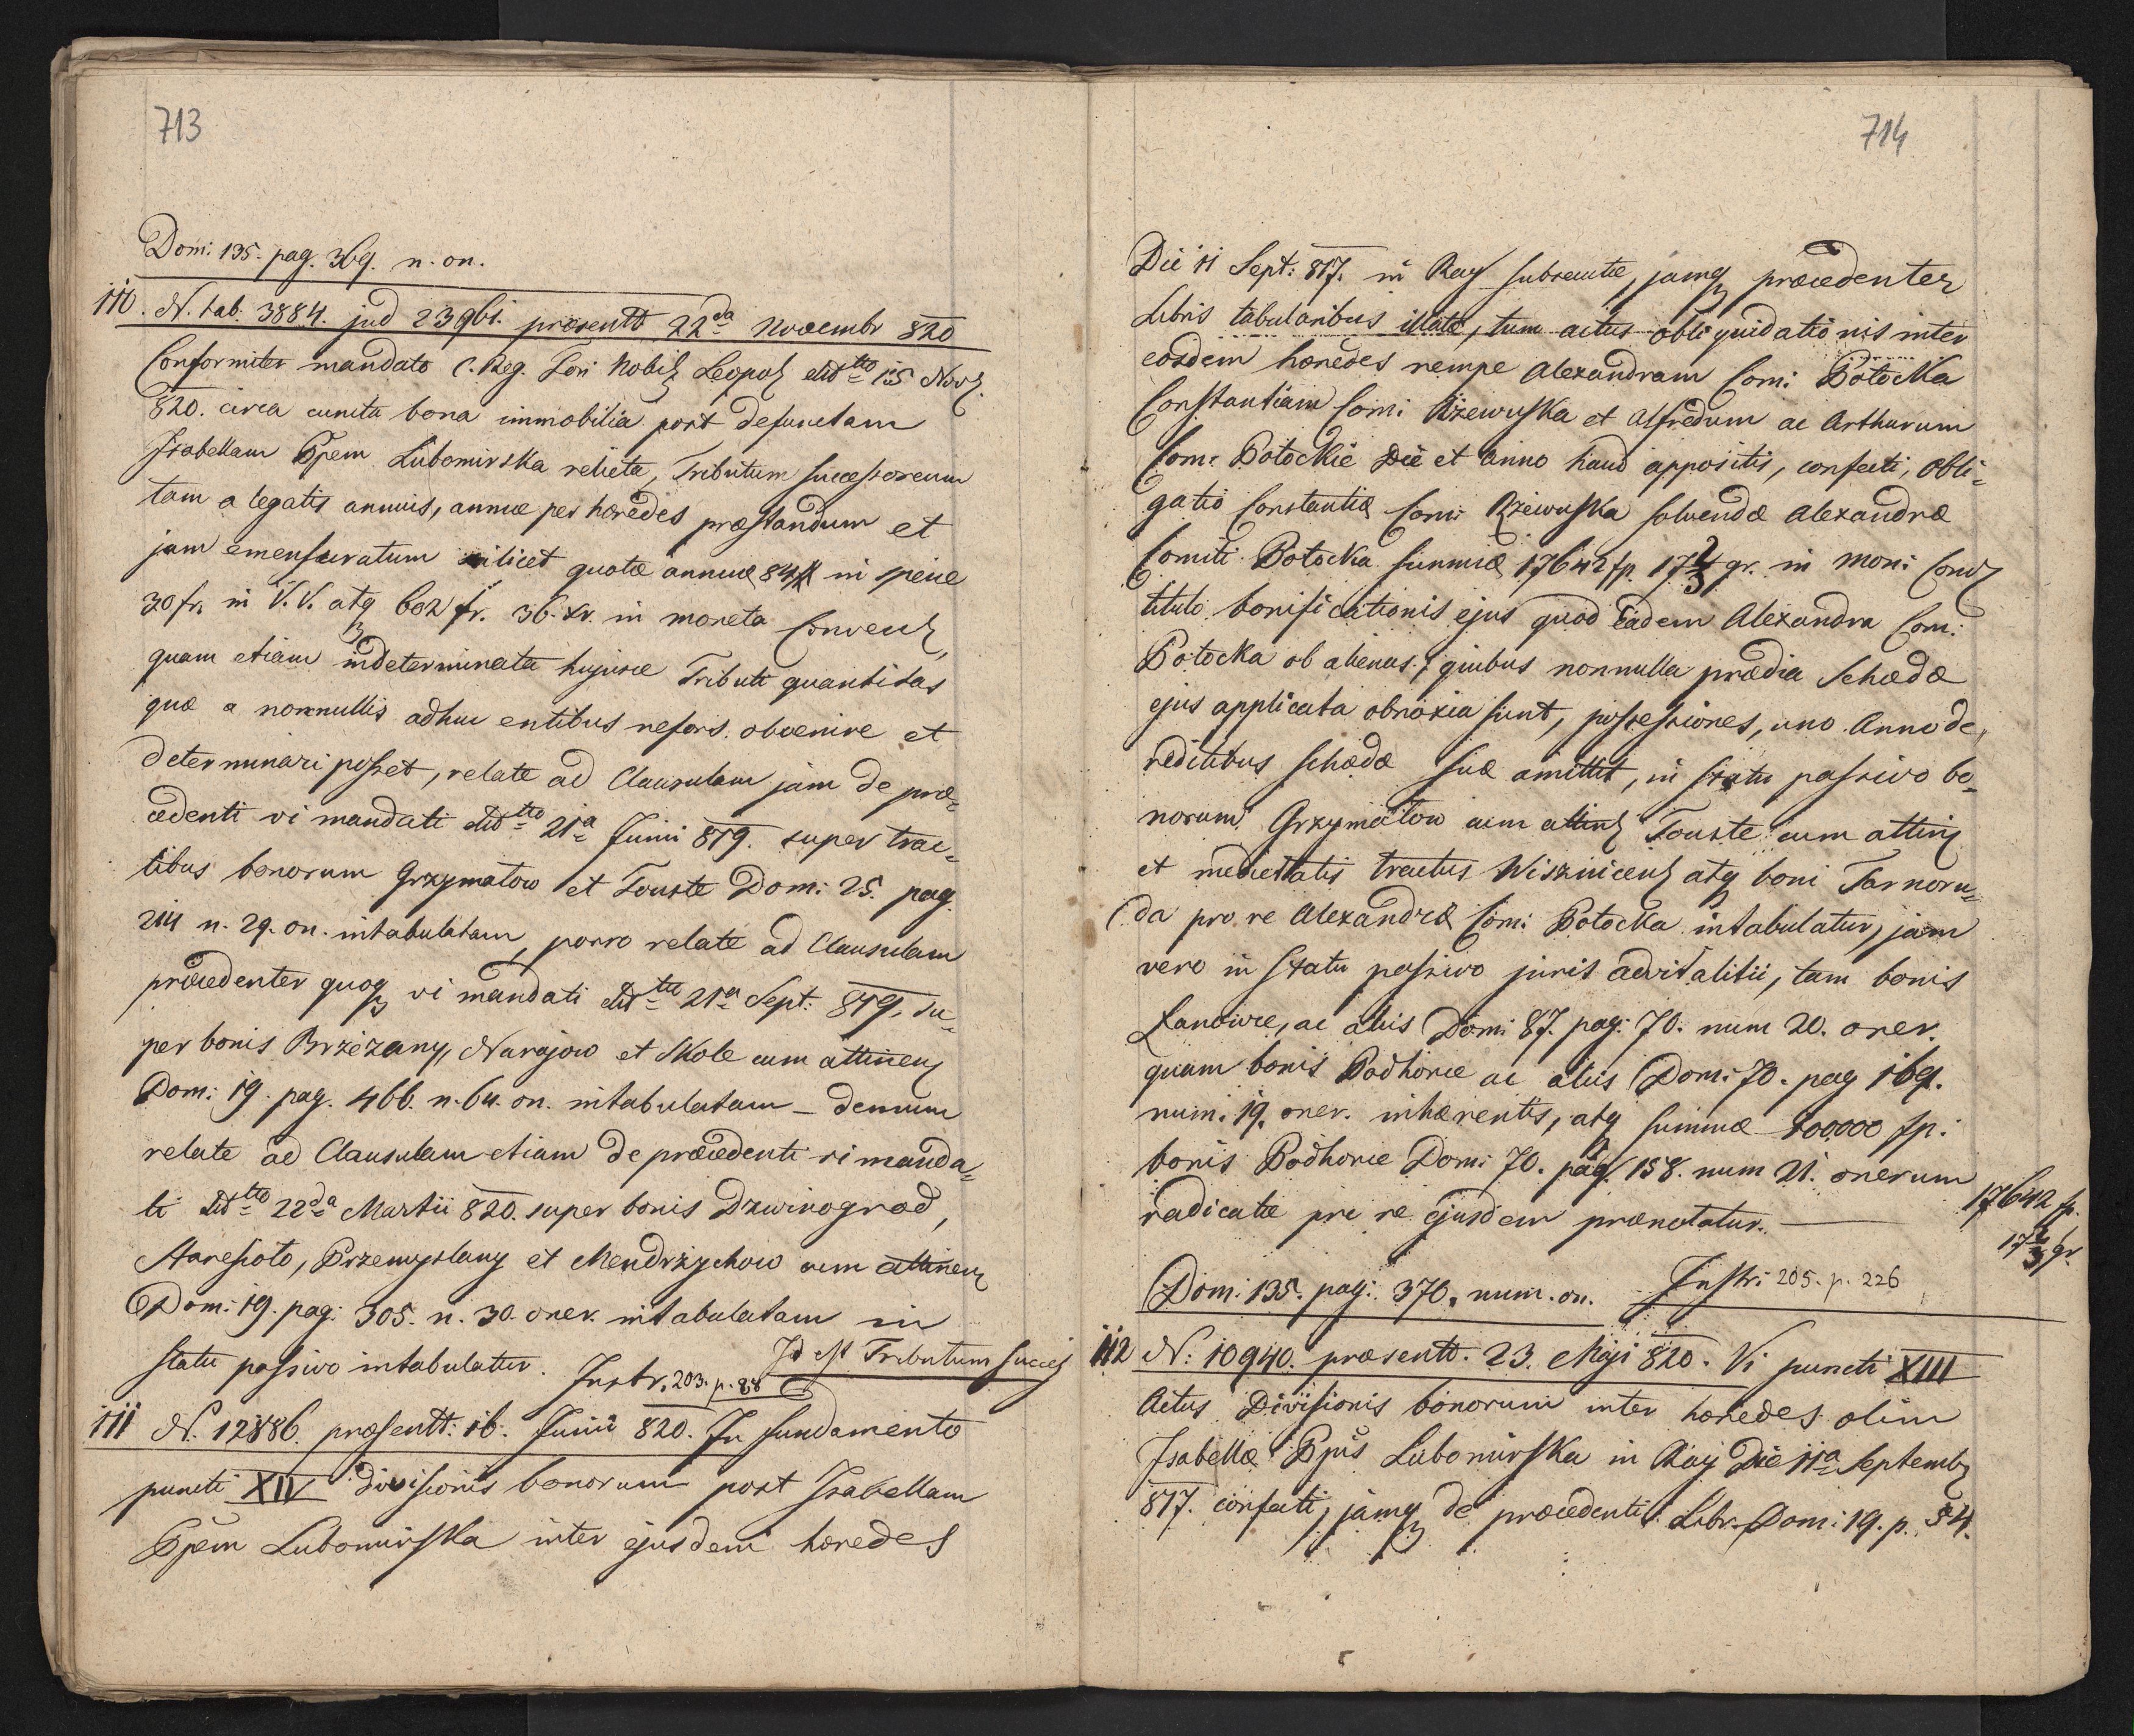 713
Dom: 135. pag. 369. n. on.
110. N. tab. 3884. jud 23961. praesentt 22da Novembr 820
Conformiter mandato C. Reg. Fori Nobil Leopol ddtto 15 Nov
820. circa cuncta bona immobilia post defunctam
Isabellam Ppem Lubomirska relicta, Tributum successoreum
tam a legatis annuis, annue per haeredes praestandum et
jam emensuratum scilicet quotae annuae 84 # in specie
30 fr. in V. V. atq 602 fr. 36. xr. in moneta Convent,
quam etiam indeterminata hujusce Tributi quantitas
quae a nonnullis adhuc entibus nefors. obvenire et
determinari posset, relate ad Clausulam jam de prae=
cedenti vi mandati ddtto 21a Junii 819. super trac=
tibus bonorum Grzymatow et Touste Dom: 25. pag.
214 n. 29. on. intabulatam, porro relate ad Clausulam
praecedenter quoq vi mandati ddtto 21a Sept: 819. su=
per bonis Brzeżany, Narajow et Skole cum attinen
Dom: 19. pag. 466. n. 64. on. intabulatam _ demum
relate ad Clausulam etiam de praecedenti vi manda=
ti ddtto 22da Martii 820. super bonis Dzwinogrod,
Staresioto, Przemyslany et Mendrzychow cum attinen
Dom: 19. pag: 305. n. 30. oner. intabulatam in
statu passivo intabulatur. Instr. 203. p. 88 Id est Tributum succes
111 N. 12886. praesentt: 16. Junii 820. In fundamento
puncti XIV divisionis bonorum post Isabellam
Ppem Lubomirska inter ejusdem haeredes
714
Die 11 Sept: 817. in Ray subsecutae, jamq praecedenter
Libris tabularibus illatae, tum actus obliquidationis inter
eosdem haeredes nempe Alexandram Com: Potocka
Constantiam Com: Rzewuska et Alfredum ac Arthurum
Com: Potockie Die et Anno haud appositis, confecti, obli=
gatio Constantiae Com: Rzewuska solvendae Alexandrae
Comiti Potocka summae 17642 fp. 17 2/3 gr. in mon: Conv
titulo bonificationis ejus quod eadem Alexandra Com:
Potocka ob alienas, quibus nonnulla praedia Schedae
ejus applicata obnoxia sunt, possessiones, uno Anno de
reditibus schedae suae amittit, in statu passivo bo=
norum Grzymatow cum attin Touste cum attin
et medietatis tractus Wiszniicen atq boni Tarnoru=
da pro re Alexandrae Com: Potocka intabulatur, jam
vero in statu passivo juris advitalitii, tam bonis
Lanowce, ac aliis Dom: 87. pag: 70. num 20. oner.
quam bonis Podhorce ac aliis Dom: 70. pag 169.
num: 19. oner. inhaerentis, atq summae 100000 fp:
bonis Podhorce Dom: 70. pag. 158. num 21. onerum
radicatae pro re ejusdem praenotatur. — 17642 fp.
17 2/3 gr.
Dom: 135. pag: 370. num. on. Instr: 205. p. 226
112 N: 10940. praesentt. 23. Maji 820. Vi puncti XIII
Actus Divisionis bonorum inter haeredes olim
Isabellae Ppis Lubomirska in Ray Die 11a Septemb
817. confecti, jamq de praecedenti Libr. Dom: 19. p. 54.